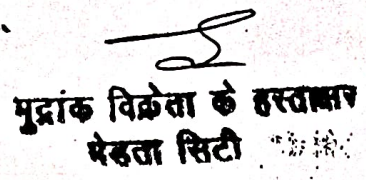 मुद्रांक विक्रेता के हस्ताक्षर
मेडता सिटी